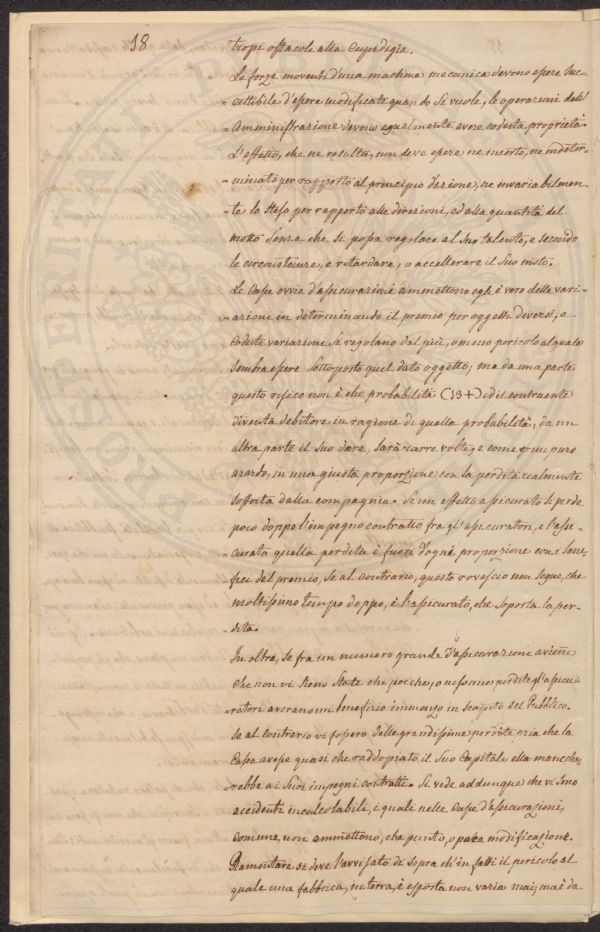 18
tropi ostacoli alla Cupidigia.
Le forze moventi d'una machina mecanica devono essere Suc-
-cettibile d'essere modificate quando Si vuole, le operazioni dell'
Amministrazione devono egualmente avere codesta proprietà.
L'effetto, che ne resulta, non deve essere ne incerto, ne indeter-
-minato per rapporto al principio d'ezione, ne invariabilmen-
-te lo Steso per rapporto alle direzioni, ed alla quantità del
motto Senza che Si possa regolare al Suo talento, e Secondo
le circonstanze, e ritardare, o accellerare il Suo moto.
Le Casse ovvie d'assicurazione ammettono egli è vero delle vari-
-azione in determinando il premio per oggetti deversi, e
codeste variazione Si regolano dal più, o meno pericolo al quale
Sembra essere Sottoposto quel dato oggetto; ma da una parte
questo risico non è che probabilità (13+) ed il contraente
diventa debitore in ragione di quella probabilità, da un
altra parte il Suo dare, Sarà rare volte, e come un puro
azardo, in una giusta proporzione con la perdita realmente
sofferta dalla compagnia. Se un effetto assicurato Si perde
poco doppo l'impegno contratto fra gl'assicuratori, e l'assi-
-curato quella perdita è fuori d'ogni proporzione con i bene-
fici del premio, Se al Contrario, questo rovescio non Segue, che
moltissimo tempo doppo, è l'assicurato, che soporta la per-
-dita.
In oltre, Se fra un numero grande d'assicurazione aviene
che non vi Sieno State che poche, o nessune perdite gl'assicu-
-ratori averano un benefizio immenzo in Scapito del Pubblico.
Se al contrario vi fossero delle grandissime perdite ozia che la
Cassa avesse quasi che raddopiato il Suo Capitale ella manche-
-rebbe ai Suoi impegni contratti. Si vede addunque che vi Sono
accidenti incalcolabili, i quali nelle Casse d'assicurazioni,
comune, non ammettono, che puosto, o poca modificazione.
Ramentare si deve l'avvisato di Sopra ch'in fatti il pericolo al
quale una fabbrica, in terra, è esposta non varia mai, ma è da